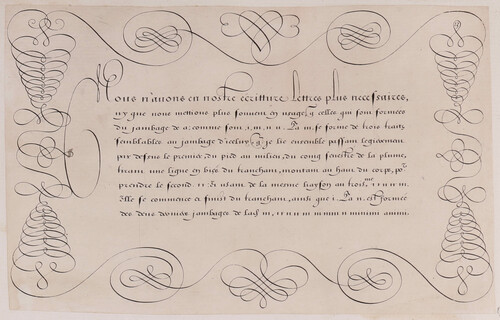 Nous n'auons en nostre ecritture lettres plus necessaires,
ny que nous mettions plus souuent en vsage, q celles qui sont formees
du jambage de a: comme sont, i, m, n, u. La m, se forme de trois traitz
semblables au jambage d'iceluy a, & se lie ensemble passant legierement
par dessus le premier du pied au milieu, du coing senestre de la plume,
tirant une ligne en biez du tranchant, montant au haut du corps, po.r
prendre le second. Et usant de la mesme liayson au trois.me
Elle se commence et finist du tranchant, ainsi que i. La n, est formee
des deux derniers jambages de la m,